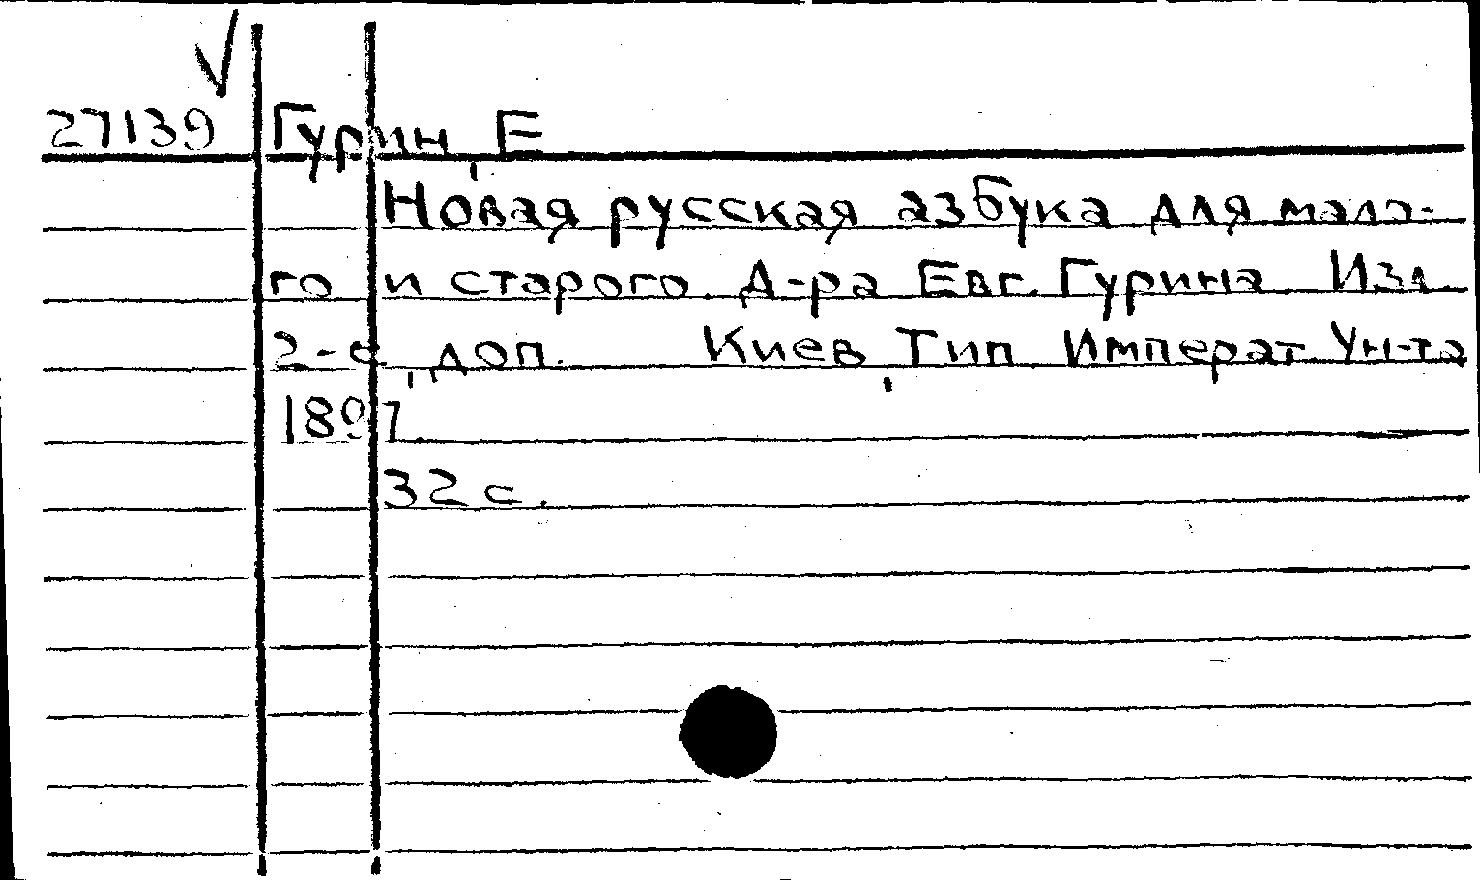 27139 Гурин, Е
Новая русская азбука для мало-
го и старого. Д-ра Евг. Гурина Изд.
2-е, доп. Киев, Тип Императ. Ун-та
1897.
32 с.